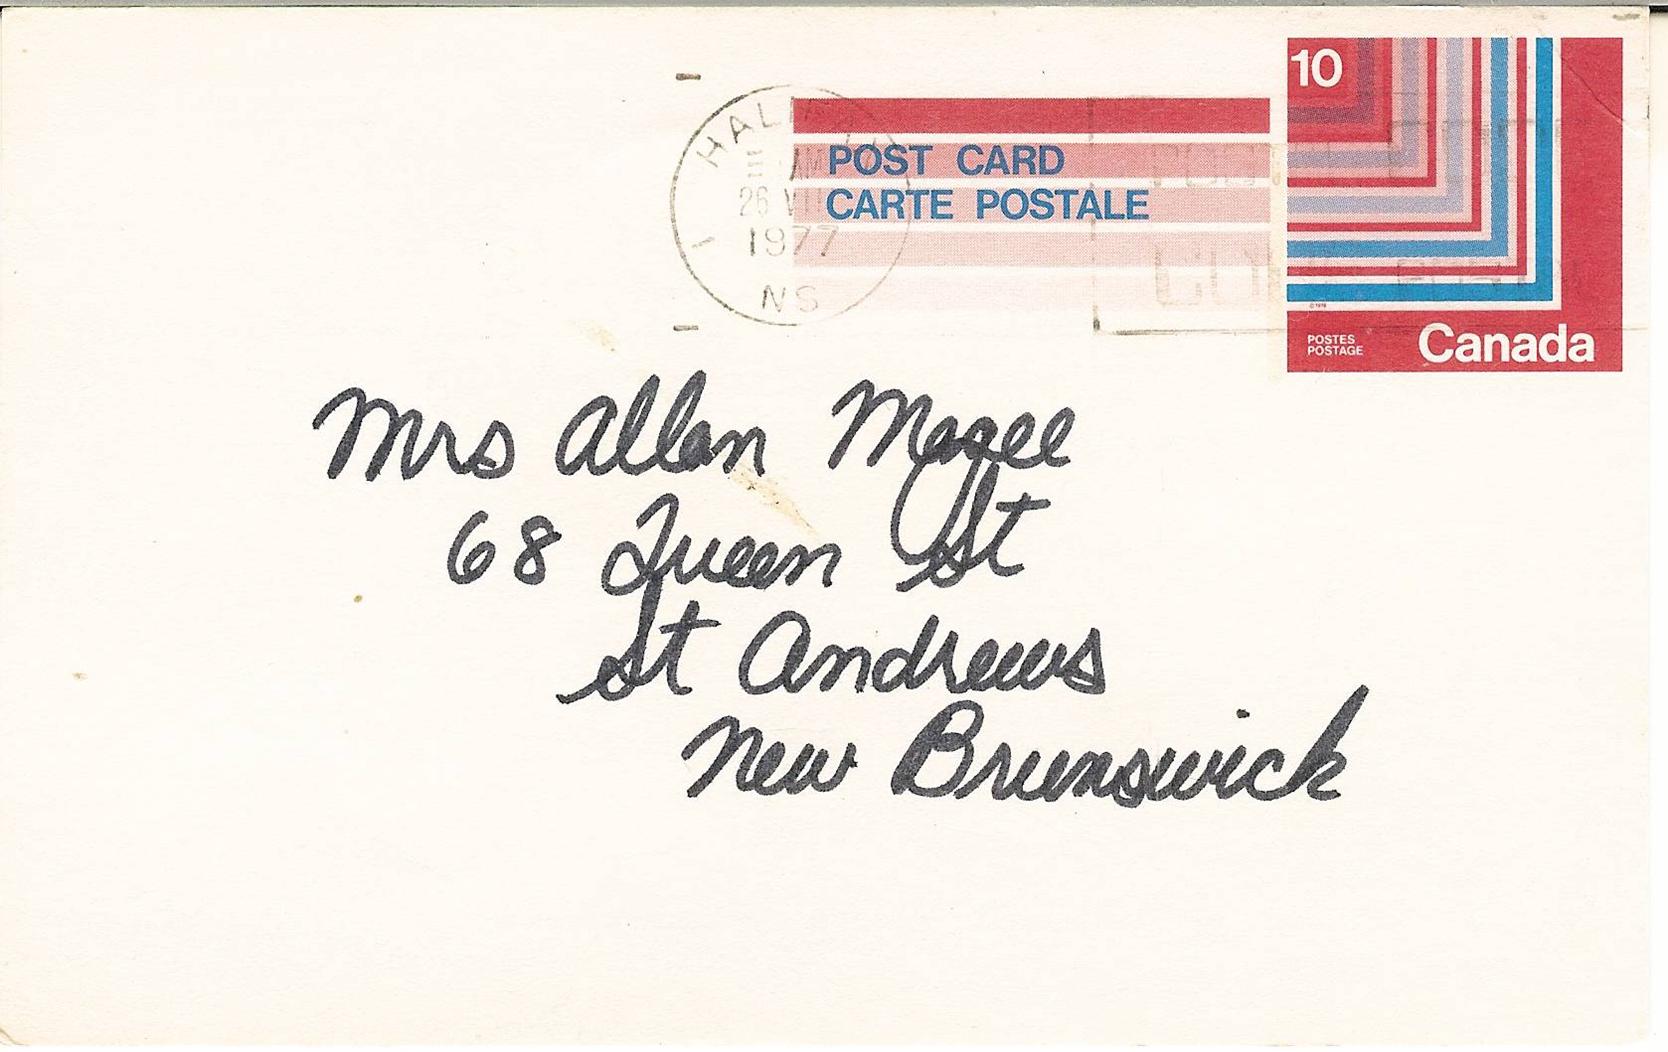 10
HALIFAX
AM
26 VII
1977
NS
POST CARD
CARTE POSTALE
POSTES
POSTAGE
Canada
Mrs Allan Magee
68 Queen St
St Andrews
New Brunswick